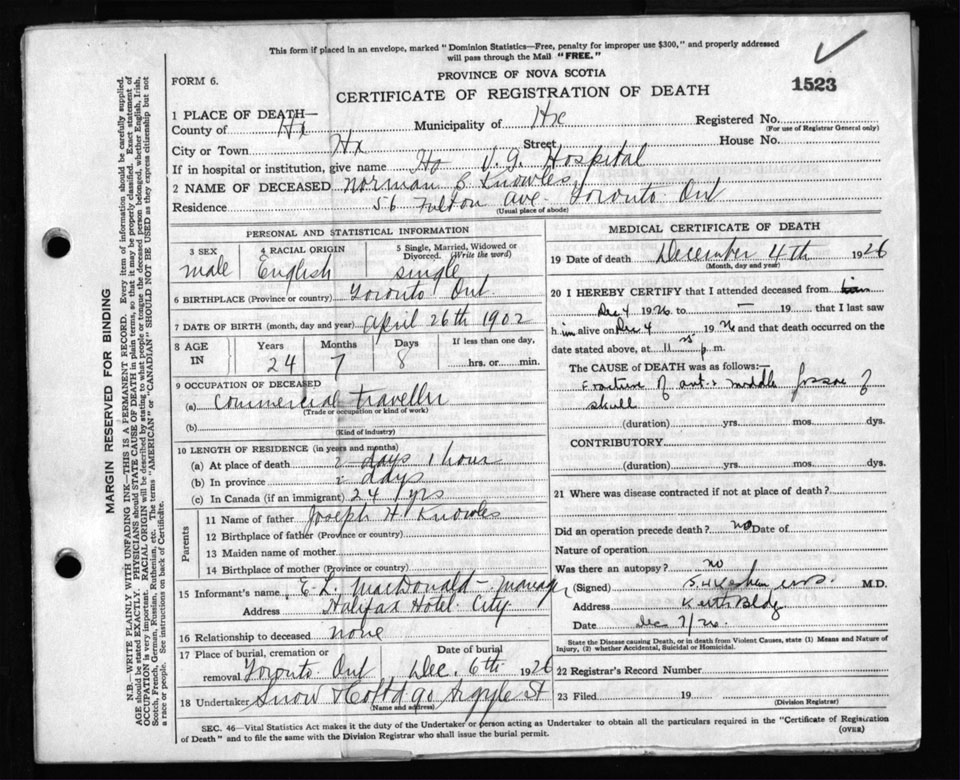 This form if placed in an envelope, marked "Dominion Statistics—Free, penalty for improper use $300," and properly addressed
will pass through the Mail "FREE."
FORM 6.
PROVINCE OF NOVA SCOTIA
1523
CERTIFICATE OF REGISTRATION OF DEATH
1 PLACE OF DEATH—
County of Hx Municipality of Hx Registered No.
(For use of Registrar General only)
City or Town Hx Street House No.
If in hospital or institution, give name Hx V.G. Hospital
2 NAME OF DECEASED Norman B Knowles
Residence 56 Fulton Ave. Toronto Ont
(Usual place of abode)
PERSONAL AND STATISTICAL INFORMATION
3 SEX male
4 RACIAL ORIGIN English
5 Single, Married, Widowed or Divorced. (Write the word) single
6 BIRTHPLACE (Province or country) Toronto Ont.
7 DATE OF BIRTH (month, day and year) April 26th 1902
8 AGE IN Years 24 Months 7 Days 8 If less than one day, hrs. or min.
9 OCCUPATION OF DECEASED
(a) Commercial traveller
(Trade or occupation or kind of work)
(b)
(Kind of industry)
10 LENGTH OF RESIDENCE (in years and months)
(a) At place of death 2 days 1 hour
(b) In province 2 days
(c) In Canada (if an immigrant) 24 yrs
Parents
11 Name of father Joseph H. Knowles
12 Birthplace of father (Province or country)
13 Maiden name of mother
14 Birthplace of mother (Province or country)
15 Informant's name E. L. MacDonald - manager
Address Halifax Hotel City
16 Relationship to deceased none
17 Place of burial, cremation or removal Toronto Ont Date of burial Dec. 6th 1926
18 Undertaker Snow & Co Ltd 90 Argyle St
(Name and address)
MEDICAL CERTIFICATE OF DEATH
19 Date of death December 4th 1926
(Month, day and year)
20 I HEREBY CERTIFY that I attended deceased from
Dec 4 1926 to — 19 that I last saw
him alive on Dec 4 1926 and that death occurred on
date stated above, at 11 15 p.m.
The CAUSE of DEATH was as follows:—
Fracture of ant. & middle fossae of
skull
(duration) yrs. mos. dys.
CONTRIBUTORY
(duration) yrs. mos. dys.
21 Where was disease contracted if not at place of death?
Did an operation precede death? no Date of
Nature of operation
Was there an autopsy? no
(Signed) M.D.
Address Keith Bldg
Date Dec 7/26.
State the Disease causing Death, or in death from Violent Causes, state (1) Means and Nature of
Injury, (2) whether Accidental, Suicidal or Homicidal.
22 Registrar's Record Number
23 Filed 19
(Division Registrar)
SEC. 46—Vital Statistics Act makes it the duty of the Undertaker or person acting as Undertaker to obtain all the particulars required in the "Certificate of Registration
of Death" and to file the same with the Division Registrar who shall issue the burial permit.
(OVER)
MARGIN RESERVED FOR BINDING
N.B.—WRITE PLAINLY WITH UNFADING INK—THIS IS A PERMANENT RECORD. Every item of information should be carefully supplied.
AGE should be stated EXACTLY. PHYSICIANS should STATE CAUSE OF DEATH in plain terms, so that it may be properly classified. Exact statement of
OCCUPATION is very important. RACIAL ORIGIN will be described by stating to what people or tongue the deceased person belonged, whether English, Irish,
Scotch, French, German, Russian, Ruthenian, etc. The terms "AMERICAN" or "CANADIAN" SHOULD NOT BE USED as they express citizenship but not
a race or people. See instructions on back of Certificate.